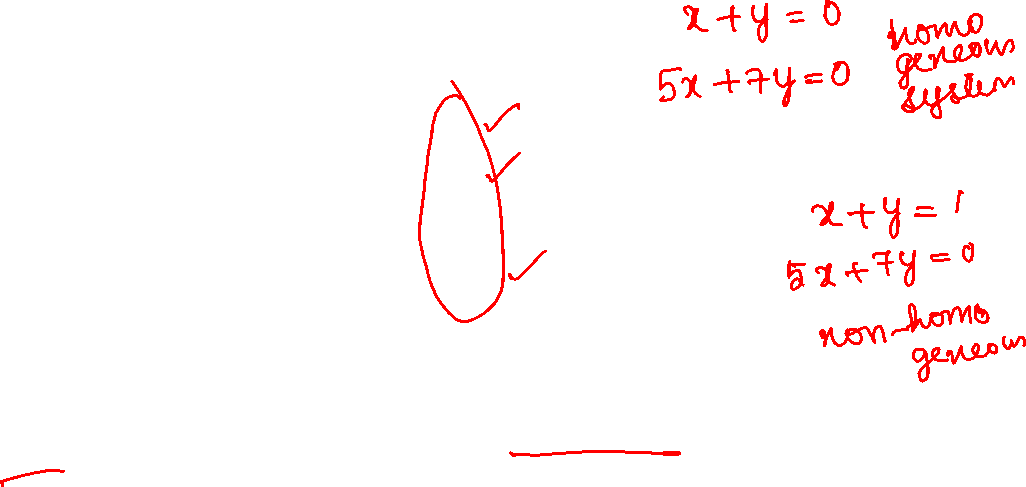 x + y = 0
5x + 7y = 0
homo
geneous
system
x + y = 1
5x + 7y = 0
non-homo
geneous